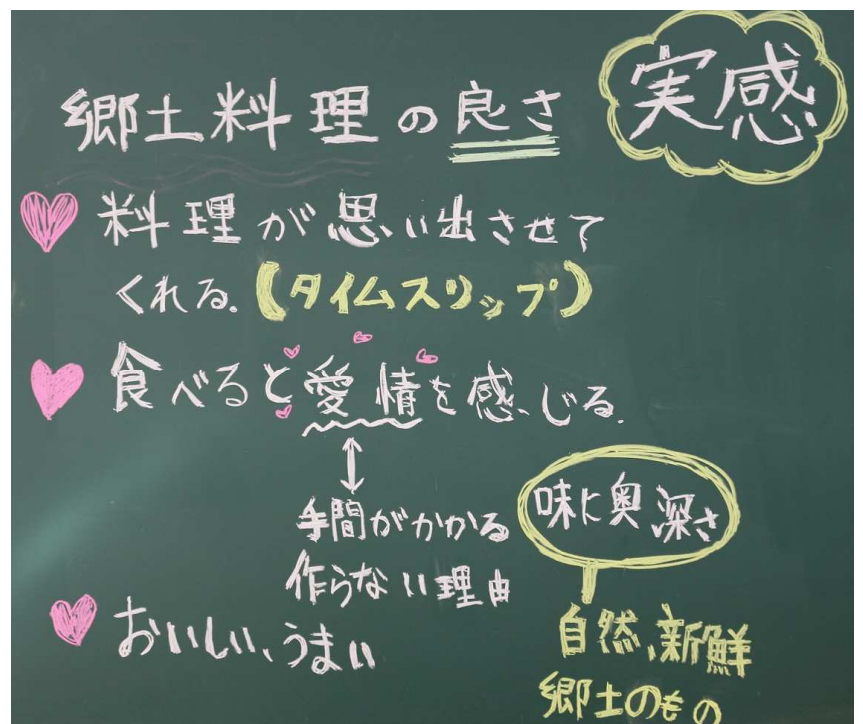 郷土料理の良さ
実感
料理が思い出させて
くれる.(タイムスリップ)
食べると愛情を感じる.
手間がかかる
作らない理由
味に奥深さ
自然、新鮮
郷土のもの
おいしい、うまい